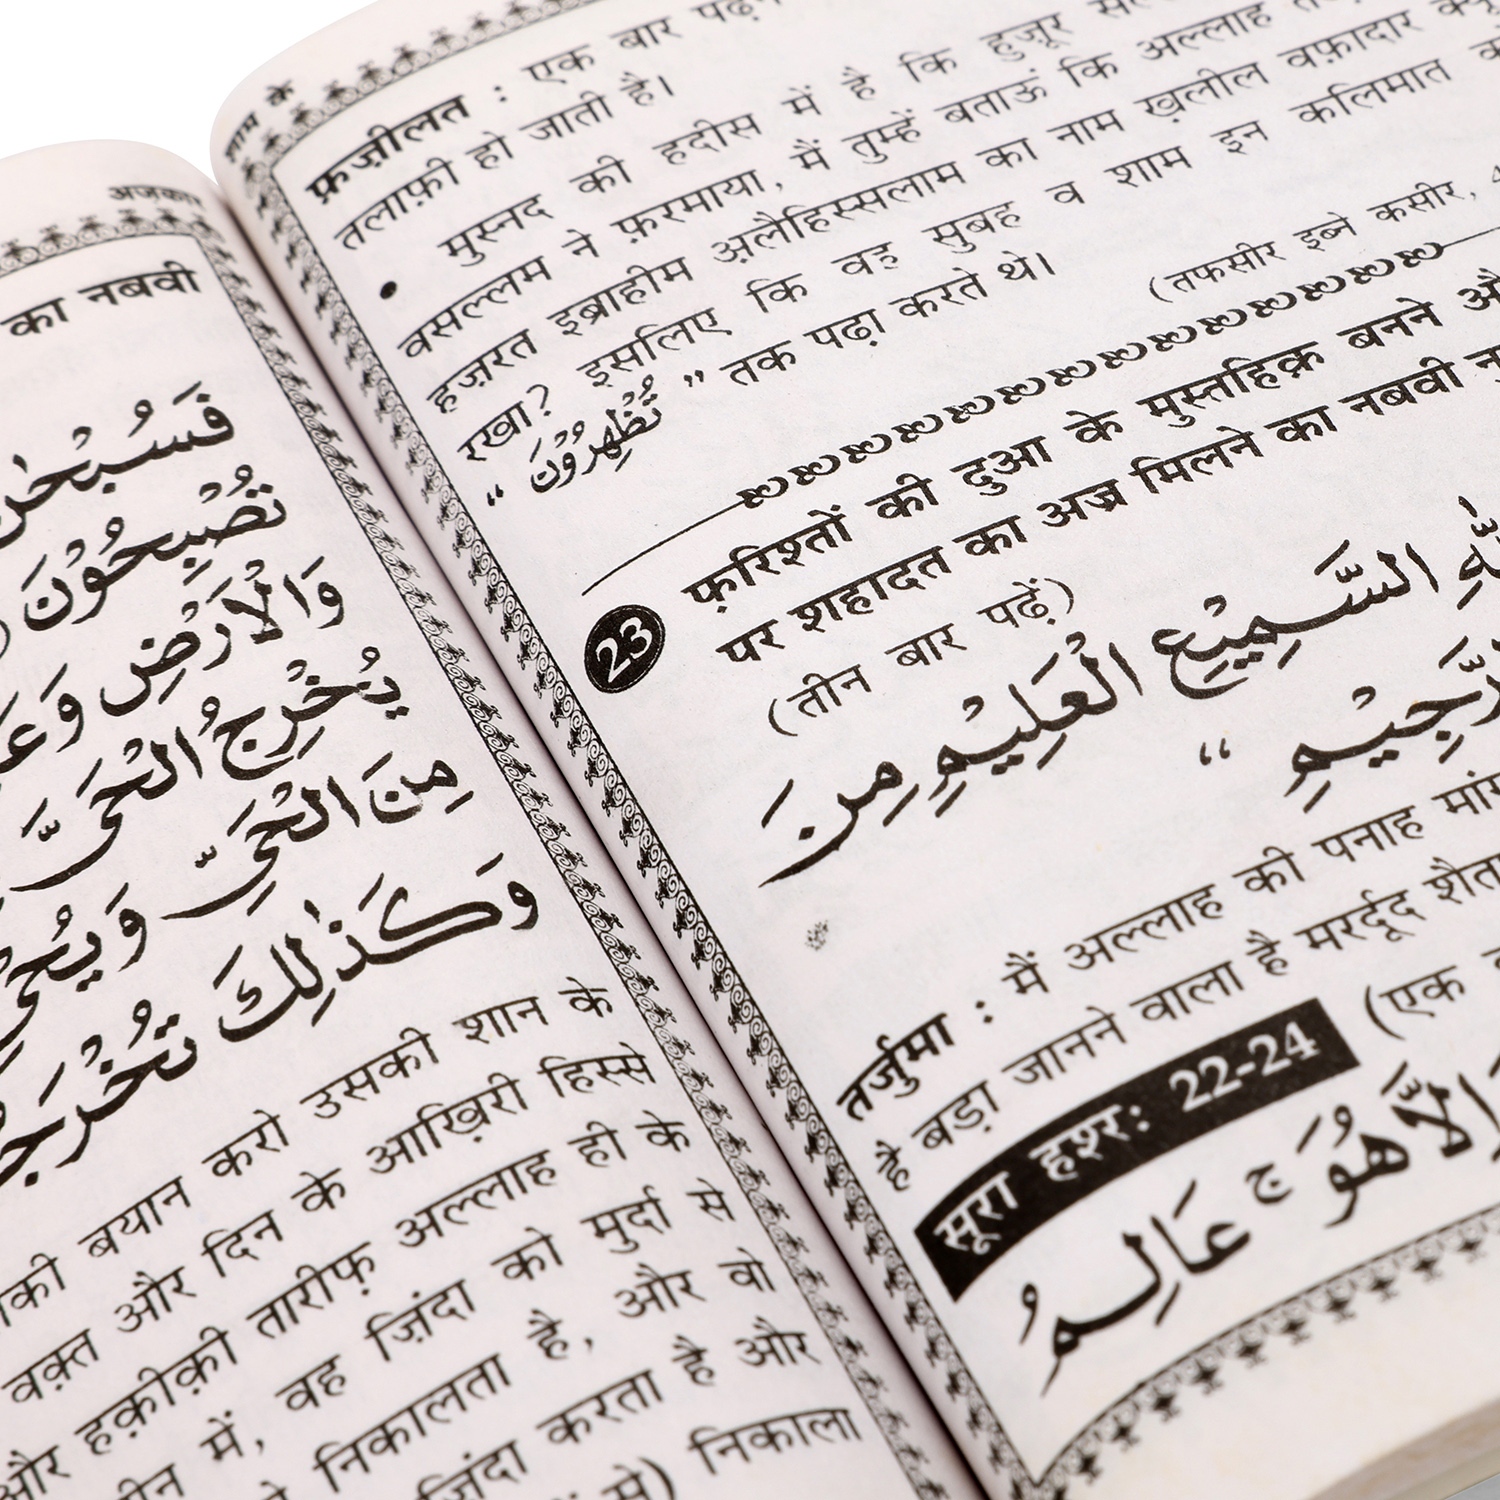 अज़कार
का नबवी
فَسُبْحٰنَ
تُصْبِحُوْنَ
وَالْاَرْضِ وَعَ
يُخْرِجُ الْحَىَّ
مِنَ الْحَىِّ وَيُحْىِ
وَكَذٰلِكَ تُخْرَجُ
बयान करो उसकी शान के
वक़्त और दिन के आख़िरी हिस्से
और हक़ीक़ी तारीफ़ अल्लाह ही के
में, वह ज़िंदा को मुर्दा से
निकालता है, और वो
ज़िंदा करता है और
से) निकाला
शाम के
फ़ज़ीलत : एक बार पढ़ने
तलाफ़ी हो जाती है।
• मुस्नद की हदीस में है कि हुज़ूर
वसल्लम ने फ़रमाया, मैं तुम्हें बताऊं कि अल्लाह
हज़रत इब्राहीम अ़लैहिस्सलाम का नाम ख़लील वफ़ादार क्यूं
रखा? इसलिए कि वह सुबह व शाम इन कलिमात को
“ تُظْهِرُوْنَ ” तक पढ़ा करते थे।
(तफसीर इब्ने कसीर, 4
23 फ़रिश्तों की दुआ के मुस्तहिक़ बनने और
पर शहादत का अज्र मिलने का नबवी
(तीन बार पढ़ें)
السَّمِيْعِ الْعَلِيْمِ مِنَ
الرَّجِيْمِ “
तर्जुमा : मैं अल्लाह की पनाह
है बड़ा जानने वाला है मर्दूद
सूरा हश्र: 22-24 (एक
اِلَّا هُوَ ج عَالِمُ